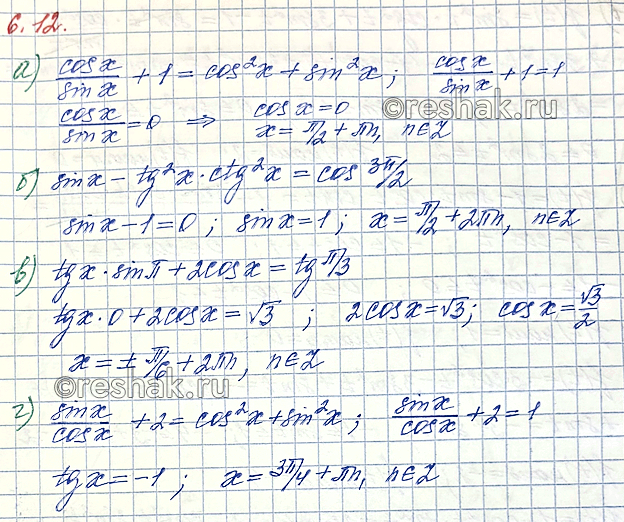 6.12.
а) cosx/sinx + 1 = cos²x + sin²x ; cosx/sinx + 1 = 1
cosx/sinx = 0 ⇒ cosx = 0
x = π/2 + πn, n∈Z
©reshak.ru
б) sinx - tg²x · ctg²x = cos 3π/2
sinx - 1 = 0 ; sinx = 1 ; x = π/2 + 2πn, n∈Z
в) tgx · sinπ + 2cosx = tg π/3
tgx · 0 + 2cosx = √3 ; 2cosx = √3 ; cosx = √3/2
x = ± π/6 + 2πn, n∈Z
©reshak.ru
г) sinx/cosx + 2 = cos²x + sin²x ; sinx/cosx + 2 = 1
tgx = -1 ; x = 3π/4 + πn, n∈Z